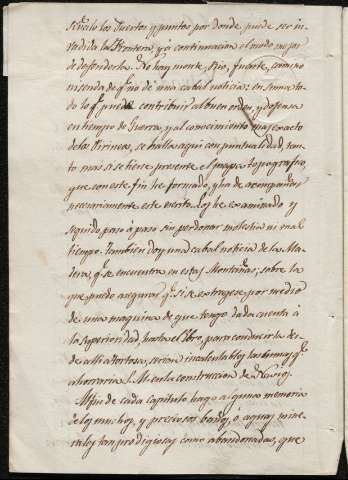 señalo los Puertos, y puntos por donde puede ser in
vadida la Frontera, y a continuacion el modo mejor
de defenderla. No hay monte, Rio, fuente, camino
ni senda de qe. no dé una cabal noticia: en suma to
do lo qe. puede contribuir al buen orden, y defensa
en tiempo de Guerra, y al conocimiento mas exacto
de los Pirineos, se halla aqui con puntualidad, tan
to mas si se tiene presente el mapa topografico,
que con este fin he formado, y ha de acompañar
necesariamente este escrito. Los he examinado y
seguido paso á paso sin perdonar molestia ni mal
tiempo. Tambien doy una cabal noticia de la Ma
dera, qe. se encuentra en estas Montañas; sobre la
que puedo asegurar qe. si se extragese por medio
de una maquina de que tengo dada cuenta á
la superioridad, hasta el Ebro, para conducirla des
de alli a Tortosa, serian incalculables las sumas qe.
ahorraria S. M. en la construccion de Navios.
Al fin de cada capitulo hago alguna memoria
de los muchos, y preciosos baños, ó aguas mine
rales tan prodigiosas como abandonadas, que